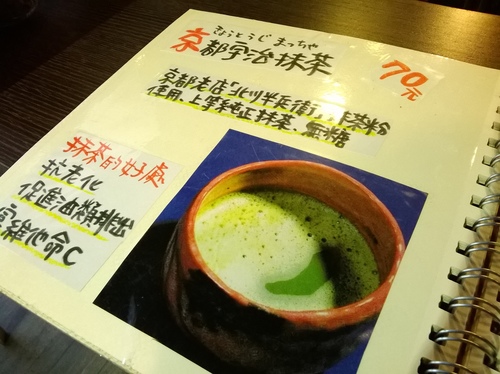 きょうとうじ まっちゃ
京都宇治抹茶
70元
京都老店"北川半兵衛"抹茶粉
使用上等純正抹茶、無糖
抹茶的好處
抗老化
促進油類排出
富維他命C